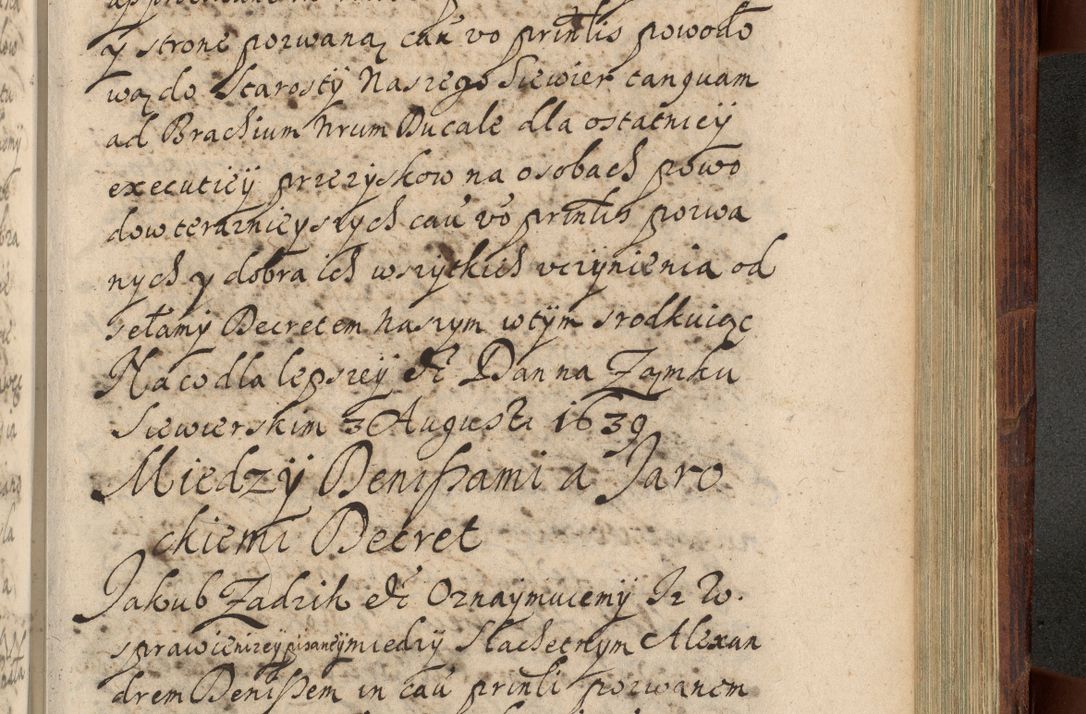 y stronę pozwaną cau vo prinlis powodo
wą do Starosty Naszego Siewier tanquam
ad Brachium Nrum Ducale dla ostatniey
executiey przezyskow na osobach powo
dow teraznieyszych cau vo prinlis pozwa
nych y dobra ich wszytkich vczynienia od
sełamy Decretem Naszym wtym srodkuiąc
Na co dla lepszey &c Dan na Zamku
Siewierskim 3 Augusti 1639
Miedzy Denissami a Jaro
ckiemi Decret
Jakub Zadzik &c Oznaymuiemy Iz W.
sprawie nizey pisaney miedzy Slachetnym Alexan
drem Denissem in cau prinli pozwanem